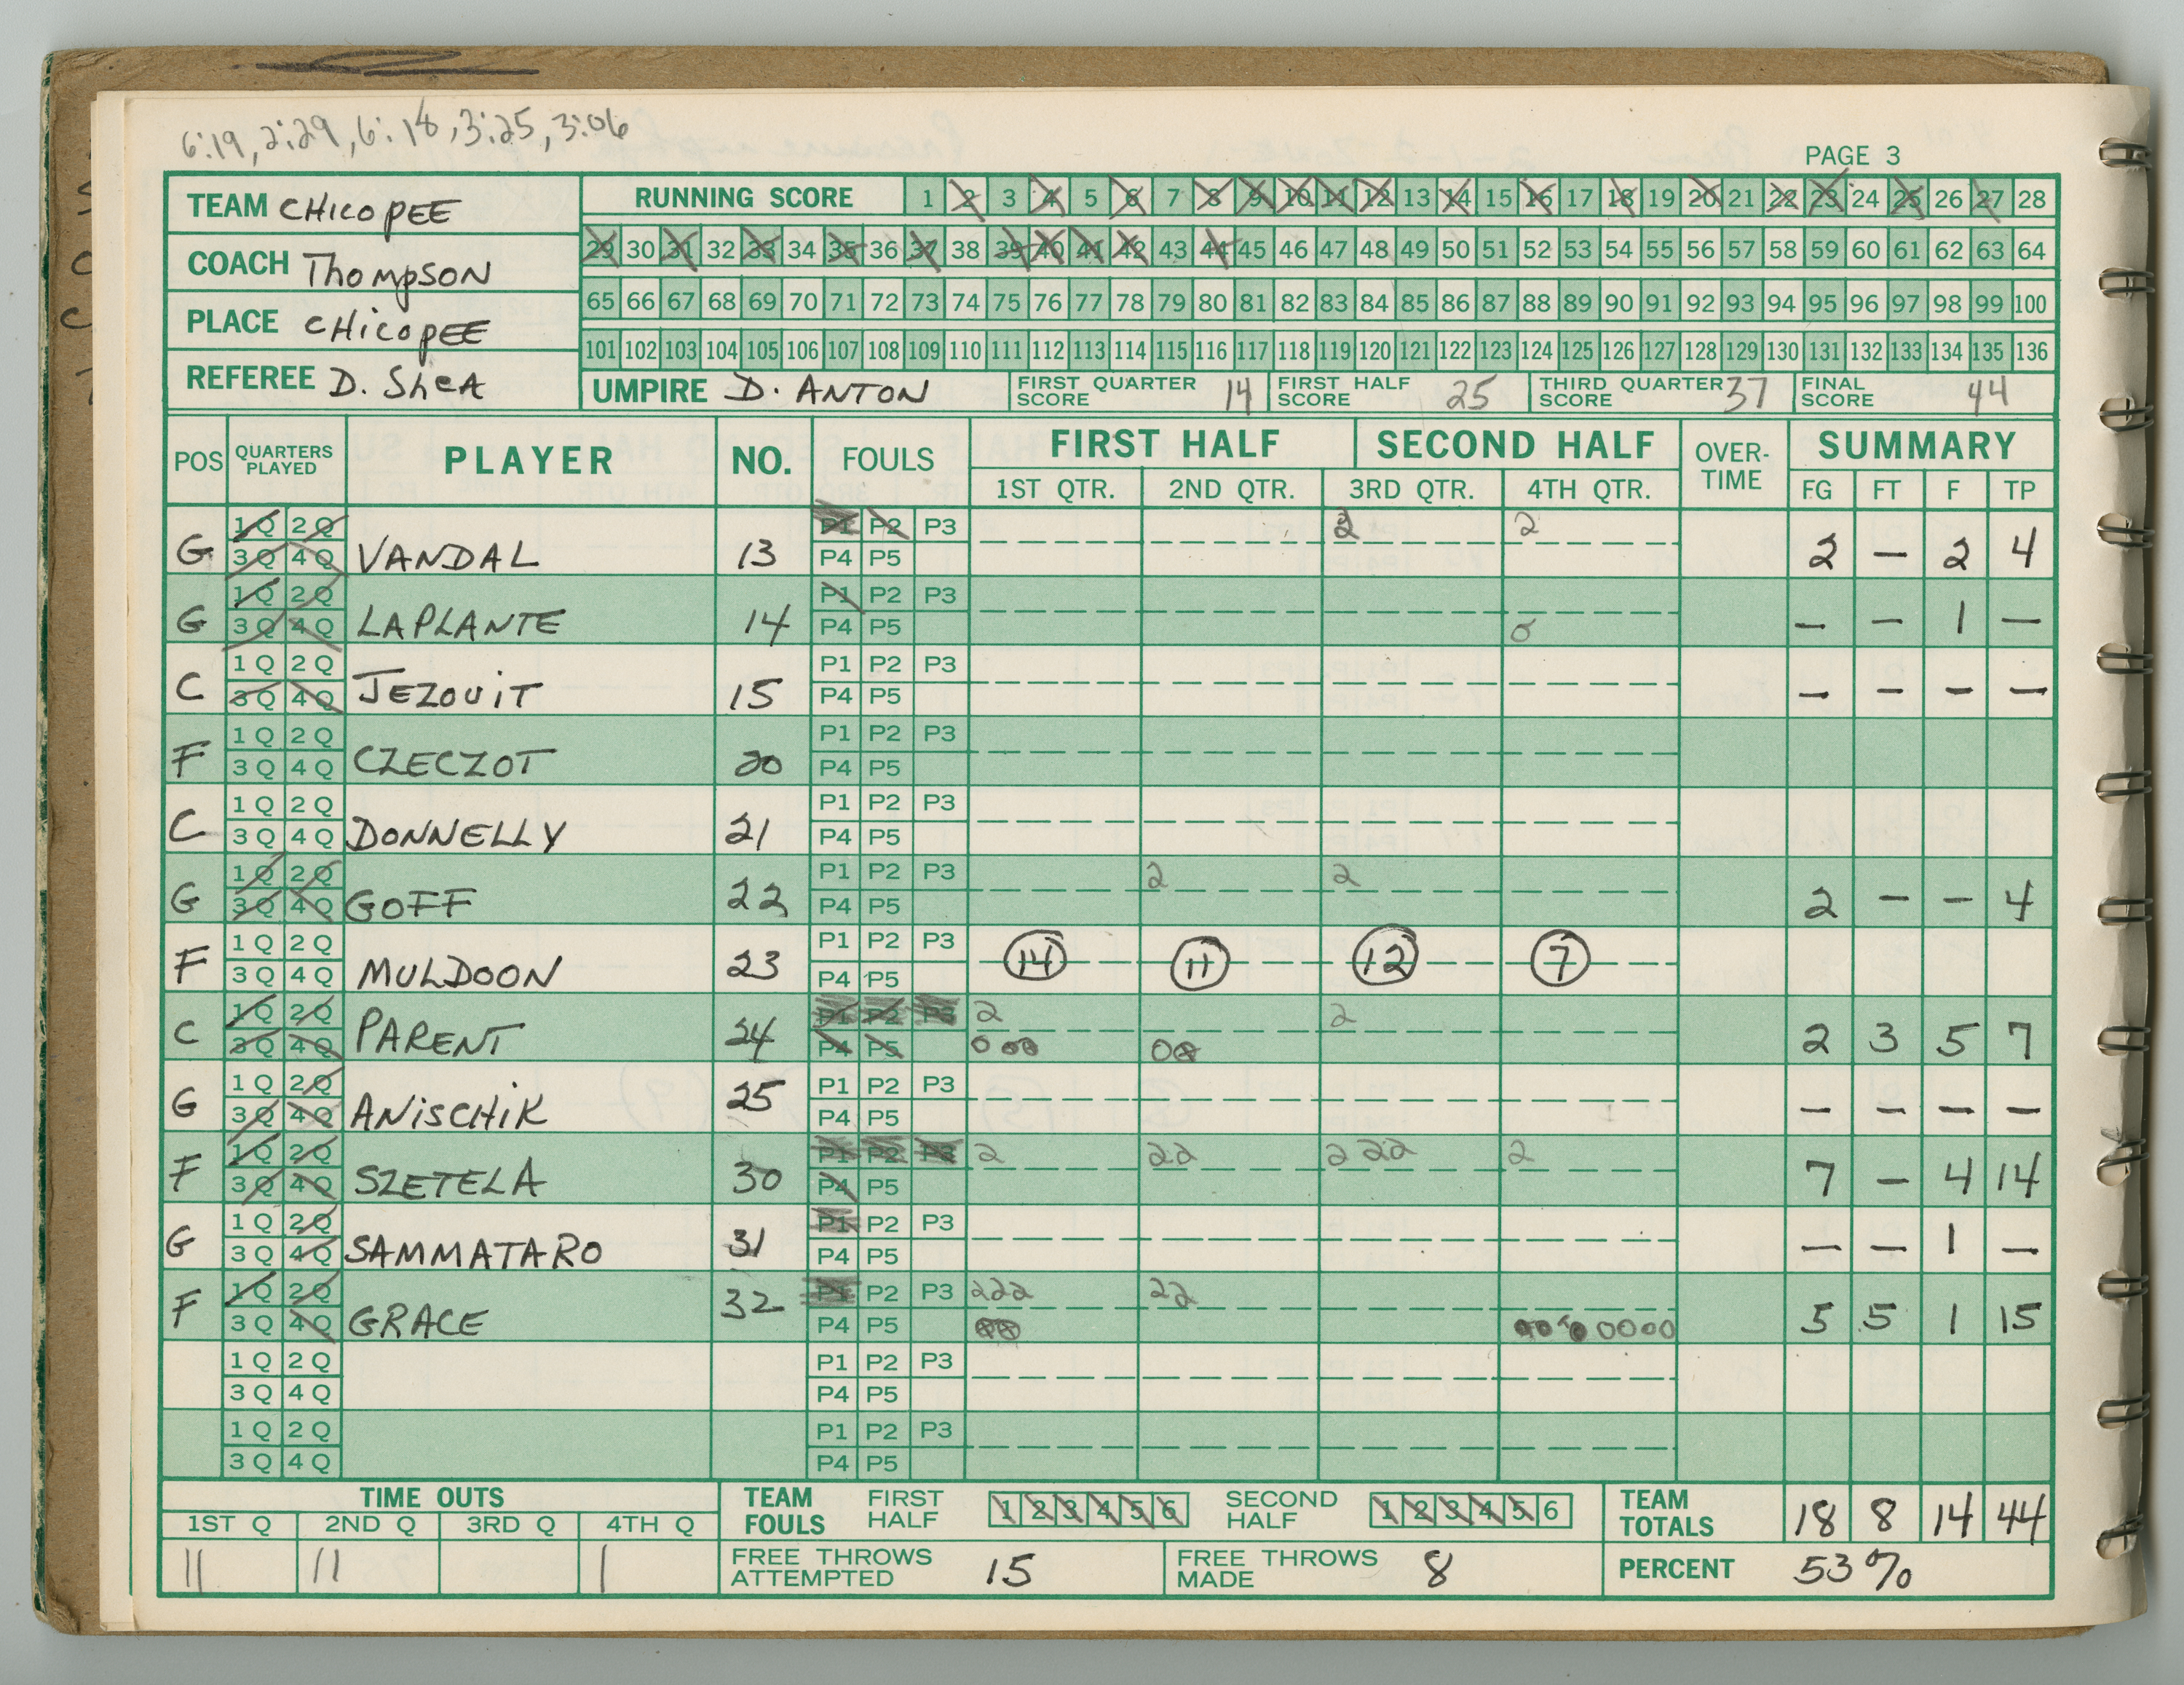 6:19, 2:29, 6:18, 3:25, 3:06
PAGE 3
TEAM CHICOPEE
RUNNING SCORE 1 2 3 4 5 6 7 8 9 10 11 12 13 14 15 16 17 18 19 20 21 22 23 24 25 26 27 28
29 30 31 32 33 34 35 36 37 38 39 40 41 42 43 44 45 46 47 48 49 50 51 52 53 54 55 56 57 58 59 60 61 62 63 64
COACH Thompson
65 66 67 68 69 70 71 72 73 74 75 76 77 78 79 80 81 82 83 84 85 86 87 88 89 90 91 92 93 94 95 96 97 98 99 100
PLACE CHicopEE
101 102 103 104 105 106 107 108 109 110 111 112 113 114 115 116 117 118 119 120 121 122 123 124 125 126 127 128 129 130 131 132 133 134 135 136
REFEREE D. SheA
UMPIRE D. ANTON
FIRST QUARTER SCORE 14
FIRST HALF SCORE 25
THIRD QUARTER SCORE 37
FINAL SCORE 44
POS QUARTERS PLAYED PLAYER NO. FOULS FIRST HALF SECOND HALF OVER-TIME SUMMARY
1ST QTR. 2ND QTR. 3RD QTR. 4TH QTR. FG FT F TP
1Q 2Q P1 P2 P3 2 2
G 3Q 4Q VANDAL 13 P4 P5 2 — 2 4
1Q 2Q P1 P2 P3
G 3Q 4Q LAPLANTE 14 P4 P5 0 — — 1 —
1Q 2Q P1 P2 P3
C 3Q 4Q JEZOUiT 15 P4 P5 — — — —
1Q 2Q P1 P2 P3
F 3Q 4Q CZECZOT 20 P4 P5
1Q 2Q P1 P2 P3
C 3Q 4Q DONNELLY 21 P4 P5
1Q 2Q P1 P2 P3 2 2
G 3Q 4Q GOFF 22 P4 P5 2 — — 4
1Q 2Q P1 P2 P3
F 3Q 4Q MULDOON 23 P4 P5 14 11 12 7
1Q 2Q P1 P2 P3 2 2
C 3Q 4Q PARENT 24 P4 P5 000 00 2 3 5 7
1Q 2Q P1 P2 P3
G 3Q 4Q ANiSCHiK 25 P4 P5 — — — —
1Q 2Q P1 P2 P3 2 22 222 2
F 3Q 4Q SZETELA 30 P4 P5 7 — 4 14
1Q 2Q P1 P2 P3
G 3Q 4Q SAMMATARO 31 P4 P5 — — 1 —
1Q 2Q P1 P2 P3 222 22
F 3Q 4Q GRACE 32 P4 P5 5 5 1 15
1Q 2Q P1 P2 P3
3Q 4Q P4 P5
1Q 2Q P1 P2 P3
3Q 4Q P4 P5
TIME OUTS
1ST Q 2ND Q 3RD Q 4TH Q
|| || |
TEAM FOULS FIRST HALF 1 2 3 4 5 6 SECOND HALF 1 2 3 4 5 6
TEAM TOTALS 18 8 14 44
FREE THROWS ATTEMPTED 15
FREE THROWS MADE 8
PERCENT 53%